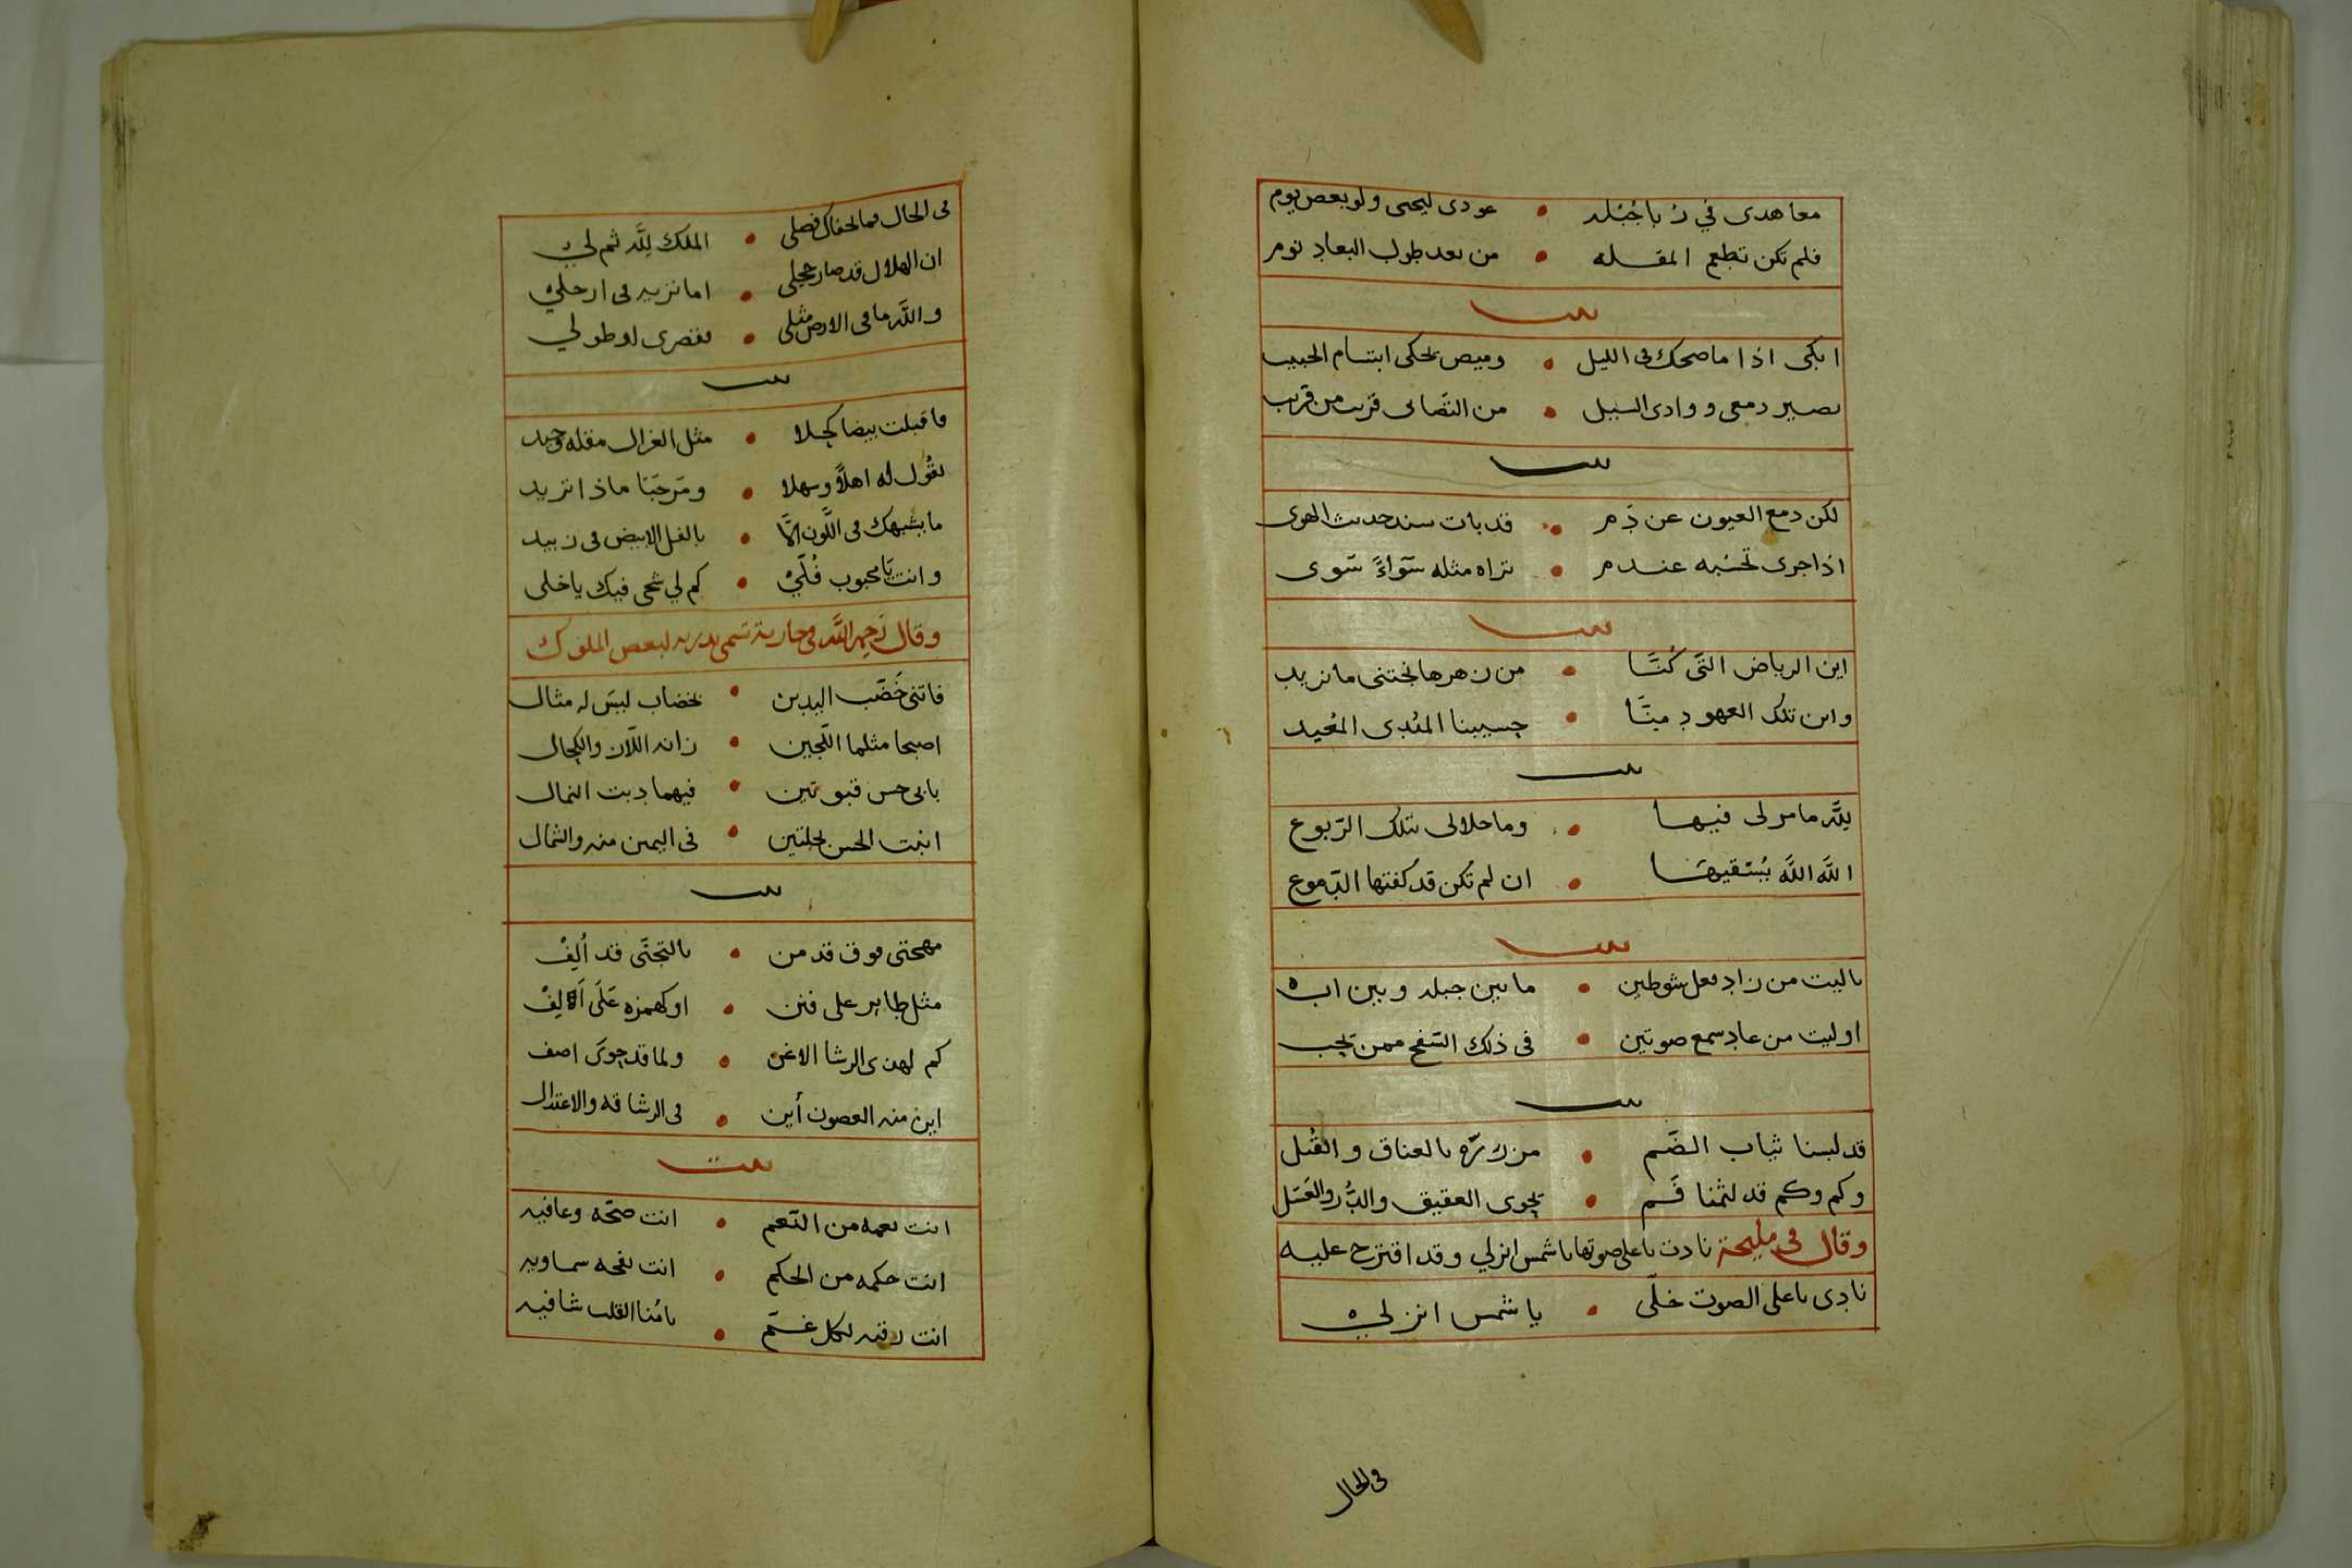 معاهدى في ربا جبله • عودى ليحيى ولو بعض يوم
فلم تكن تطعم المقله • من بعد طول البعاد نوم
بيت
ابكى اذا ما ضحك فى الليل • وميض يحكى ابتسام الحبيب
يصير دمعى ووادى السيل • من التصابى قريب من قريب
بيت
لكن دمع العيون عن دم • قد بات سند حديث الهوى
اذا جرى تحسبه عندم • تراه مثله سَوآءً سَوى
بيت
اين الرياض التى كُنَّا • من زهرها نجتنى ما نريد
واين تلك العهود منَّا • حسيبنا المُبدى المُعيد
بيت
لِلَّه ما مر لى فيها • وما حلالى بتلك الرّبوع
اللَّه اللَّه يُسْقيها • ان لم تكن قد كفتها الدّموع
بيت
ياليت من زاد فعل شوطين • ما بين جبله وبين اب
اوليت من عاد سمع صوتين • فى ذلك السَّفح ممن يحب
بيت
قد لبسنا ثياب الضَم • مزرّره بالعناق والقُبل
وكم وكم قد لثمنا فَم • يحوى العقيق والدُّر والعَسَل
وقال فى مليحة نادت باعلى صوتها يا شمس انزلي وقد اقترح عليه
نادى باعلى الصوت خلّى • يا شمس انزلي
فى الحال
فى الحال فما لحقاك فصلى • الملك لِلَّه ثم لي
ان الهلال قد صار حجلى • اما نزيد فى ارجلي
واللَّه ما فى الارض مثلى • فقصرى او طولي
بيت
فاقبلت بيضا كحلا • مثل الغزال مقله وجيد
نقُول له اهلاً وسهلا • ومَرحَبَا ماذا تريد
ما يشبهك فى اللَّون الَّا • بالفل الابيض فى زبيد
وانت يا محبوب فُلّي • كم لي شجى فيك يا خلى
وقال رحمه اللَّه فى جارية تسمى بدريه لبعض الملوك
فاتنى خَضَّب اليدين • بخضاب ليسَ له مثال
اصبحا مثلما اللّجين • زانه اللّان والكحال
بابى حسن قبوتين • فيهما دبت النمال
انبت الحسن نحلتين • فى اليمين منه والشمال
بيت
مهجتى فوق قد من • بالتجنّى قد أُلِفْ
مثل طاير على فنن • او كهمزه عَلَى اَلِفْ
كم لهذى الرشا الاغن • ولما قد حوىَ اصف
اين منه الغصون أين • فى الرشاقه والاعتدال
بيت
انت نعمه من النّعم • انت صحّه وعافيه
انت حكمه من الحكم • انت نفحه سماويه
انت رقيه لكل غَمّ • يا مُنا القلب شافيه